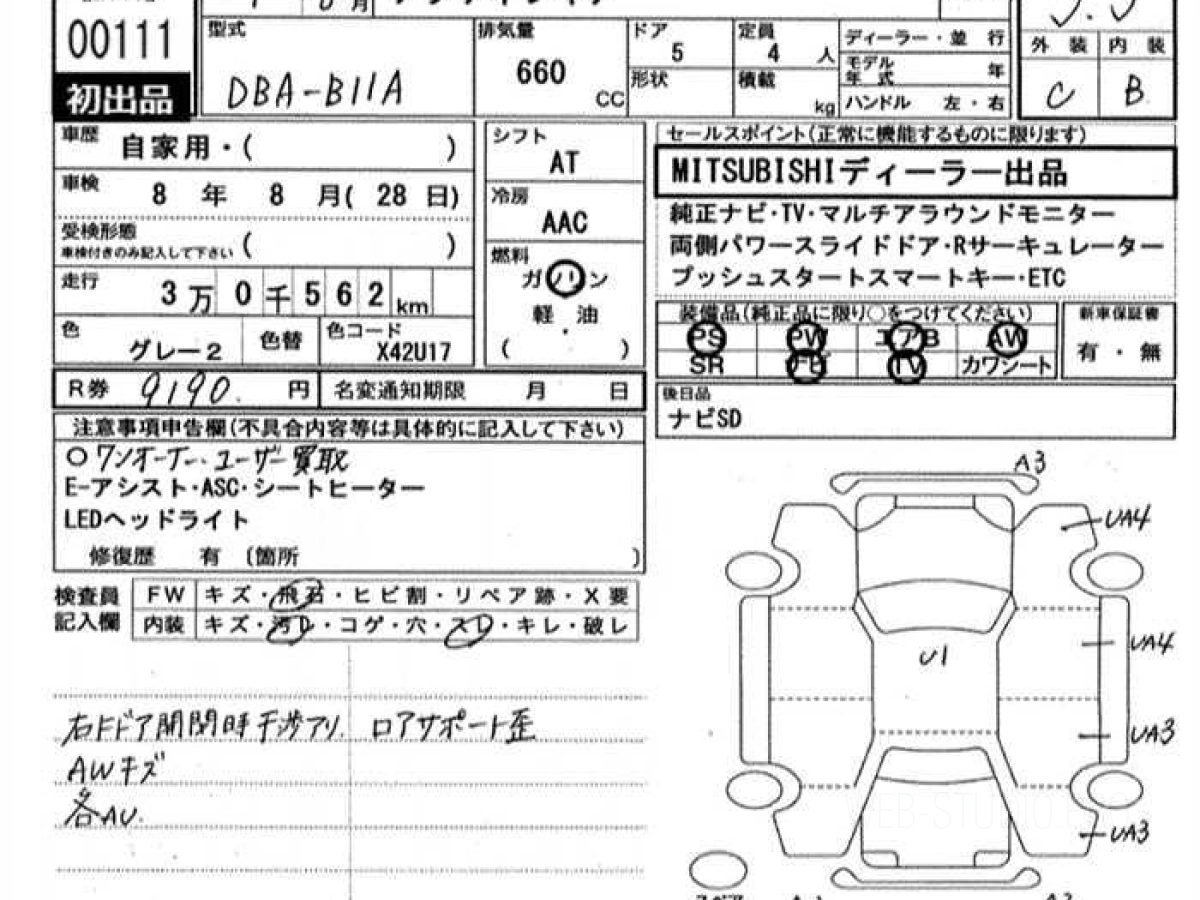 月
00111
初出品
型式
DBA-B11A
排気量
660
CC
ドア
5
形状
定員
4 人
積載
kg
ディーラー・並 行
モデル年式 年
ハンドル 左・右
外 装 内 装
C B
車歴 自家用・( )
車検 8 年 8 月( 28 日)
受検形態
車検付きのみ記入して下さい ( )
走行 3万0千562km
色 グレー2 色替 色コード X42U17
シフト
AT
冷房
AAC
燃料
ガソリン
軽 油
・
( )
セールスポイント(正常に機能するものに限ります)
MITSUBISHIディーラー出品
純正ナビ・TV・マルチアラウンドモニター
両側パワースライドドア・Rサーキュレーター
プッシュスタートスマートキー・ETC
装備品(純正品に限り○をつけてください) 新車保証書
PS PW エアB AW
SR ナビ TV カワシート
有・無
R券 9190. 円 名変通知期限 月 日
後日品
ナビSD
注意事項申告欄(不具合内容等は具体的に記入して下さい)
○ワンオーナー、ユーザー買取
E-アシスト・ASC・シートヒーター
LEDヘッドライト
修復歴 有 (箇所 )
検査員記入欄
FW キズ・飛石・ヒビ割・リペア跡・X要
内装 キズ・汚レ・コゲ・穴・スレ・キレ・破レ
右Fドア開閉時干渉アリ. ロアサポート歪
AWキズ
各AU.
A3
UA4
UA4
U1
UA3
UA3